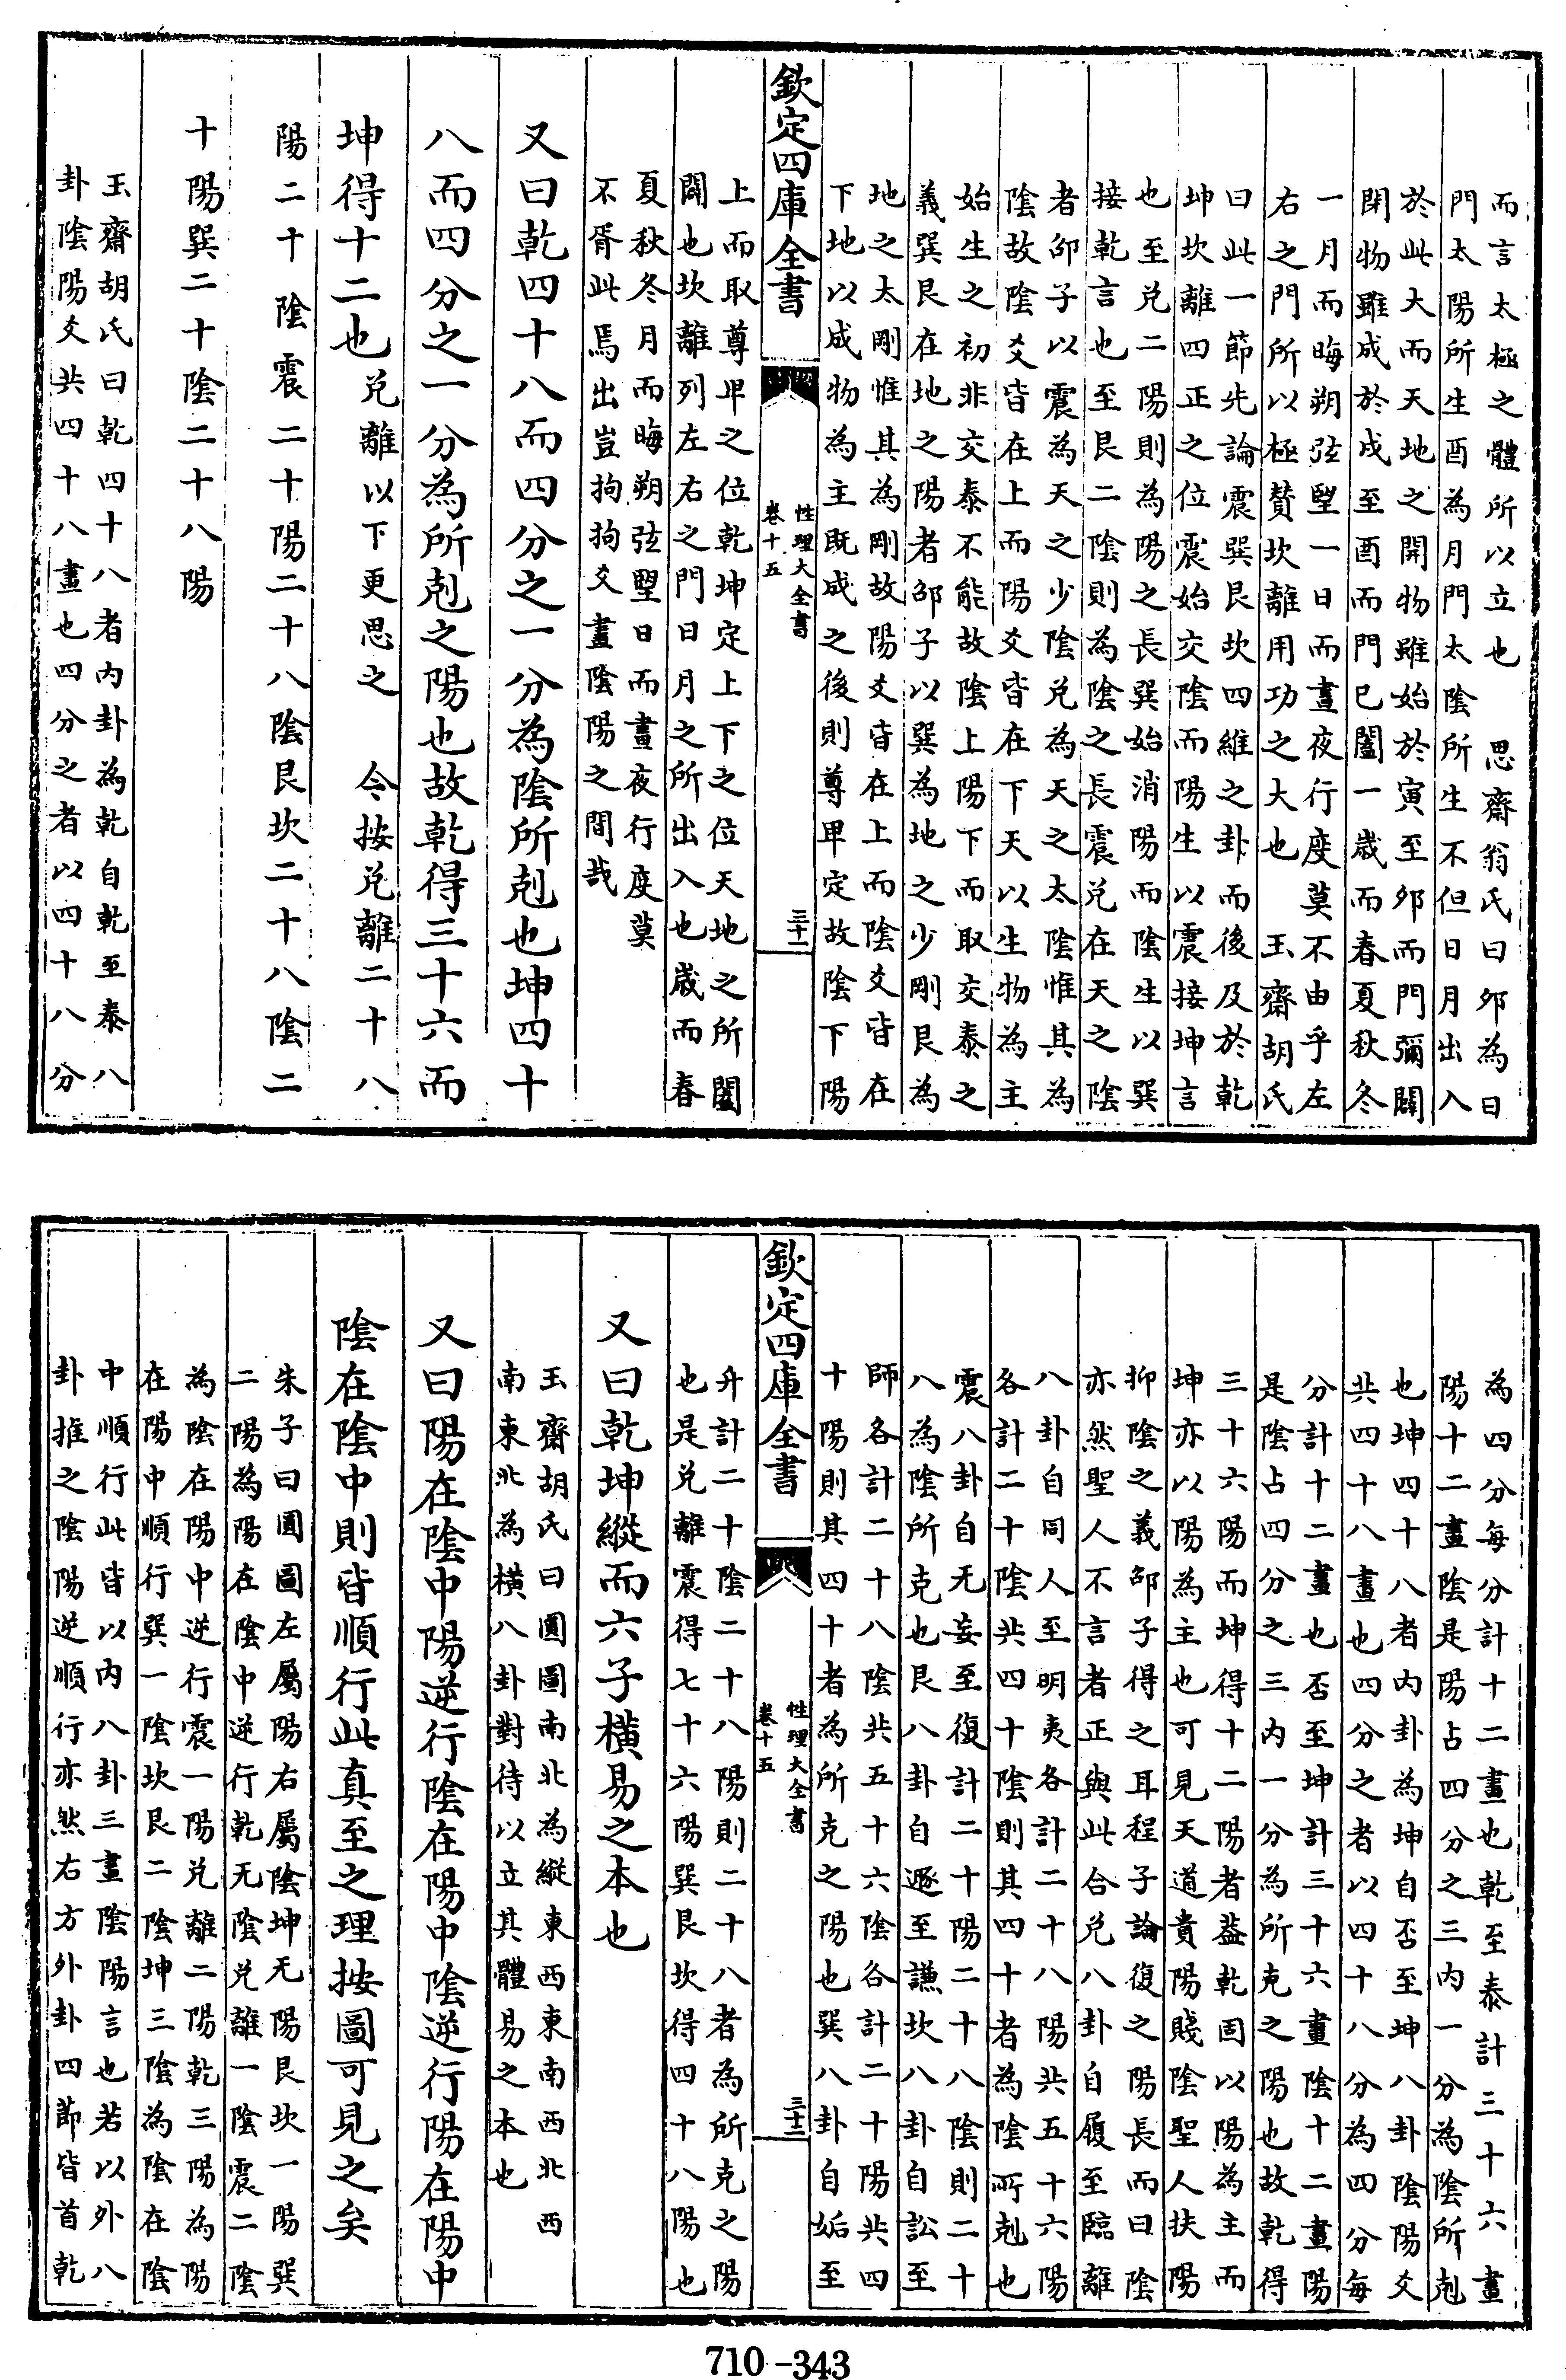 而言太極之體所以立也　思齋翁氏曰夘為日
門太陽所生酉為月門太陰所生不但日月出入
於此大而天地之開物雖始於寅至夘而門彌闢
閉物雖成於戌至酉而門已闔一歲而春夏秋冬
一月而晦朔弦望一日而晝夜行度莫不由乎左
右之門所以極賛坎離用功之大也　玉齋胡氏
曰此一節先論震巽艮坎四維之卦而後及於乾
坤坎離四正之位震始交陰而陽生以震接坤言
也至兌二陽則為陽之長巽始消陽而陰生以巽
接乾言也至艮二陰則為陰之長震兌在天之陰
者邵子以震為天之少陰兌為天之太陰惟其為
陰故陰爻皆在上而陽爻皆在下天以生物為主
始生之初非交泰不能故陰上陽下而取交泰之
義巽艮在地之陽者邵子以巽為地之少剛艮為
地之太剛惟其為剛故陽爻皆在上而陰爻皆在
下地以成物為主既成之後則尊卑定故陰下陽
欽定四庫全書
性理大全書
卷十五
三十一
上而取尊卑之位乾坤定上下之位天地之所闔
闢也坎離列左右之門日月之所出入也歲而春
夏秋冬月而晦朔弦望日而晝夜行度莫
不胥此焉出豈拘拘爻畫陰陽之間哉
又曰乾四十八而四分之一分為陰所剋也坤四十
八而四分之一分為所剋之陽也故乾得三十六而
坤得十二也
兌離以下更思之　令按兌離二十八
陽二十陰震二十陽二十八陰艮坎二十八陰二
十陽巽二十陰二十八陽
玉齋胡氏曰乾四十八者內卦為乾自乾至泰八
卦陰陽爻共四十八畫也四分之者以四十八分
為四分每分計十二畫也乾至泰計三十六畫
陽十二畫陰是陽占四分之三內一分為陰所剋
也坤四十八者內卦為坤自否至坤八卦陰陽爻
共四十八畫也四分之者以四十八分為四分每
分計十二畫也否至坤計三十六畫陰十二畫陽
是陰占四分之三內一分為所克之陽也故乾得
三十六陽而坤得十二陽者葢乾固以陽為主而
坤亦以陽為主也可見天道貴陽賤陰聖人扶陽
抑陰之義邵子得之耳程子論復之陽長而曰陰
亦然聖人不言者正與此合兌八卦自履至臨離
八卦自同人至明夷各計二十八陽共五十六陽
各計二十陰共四十陰則其四十者為陰所剋也
震八卦自无妄至復計二十陽二十八陰則二十
八為陰所克也艮八卦自遯至謙坎八卦自訟至
師各計二十八陰共五十六陰各計二十陽共四
十陽則其四十者為所克之陽也巽八卦自姤至
欽定四庫全書
性理大全書
卷十五
三十二
升計二十陰二十八陽則二十八者為所克之陽
也是兌離震得七十六陽巽艮坎得四十八陽也
又曰乾坤縱而六子橫易之本也
玉齋胡氏曰圓圖南北為縱東西東南西北西
南東北為橫八卦對待以立其體易之本也
又曰陽在陰中陽逆行陰在陽中陰逆行陽在陽中
陰在陰中則皆順行此真至之理按圖可見之矣
朱子曰圓圖左屬陽右屬陰坤无陽艮坎一陽巽
二陽為陽在陰中逆行乾无陰兌離一陰震二陰
為陰在陽中逆行震一陽兌離二陽乾三陽為陽
在陽中順行巽一陰坎艮二陰坤三陰為陰在陰
中順行此皆以內八卦三畫陰陽言也若以外八
卦推之陰陽逆順行亦然右方外卦四節皆首乾
710-343